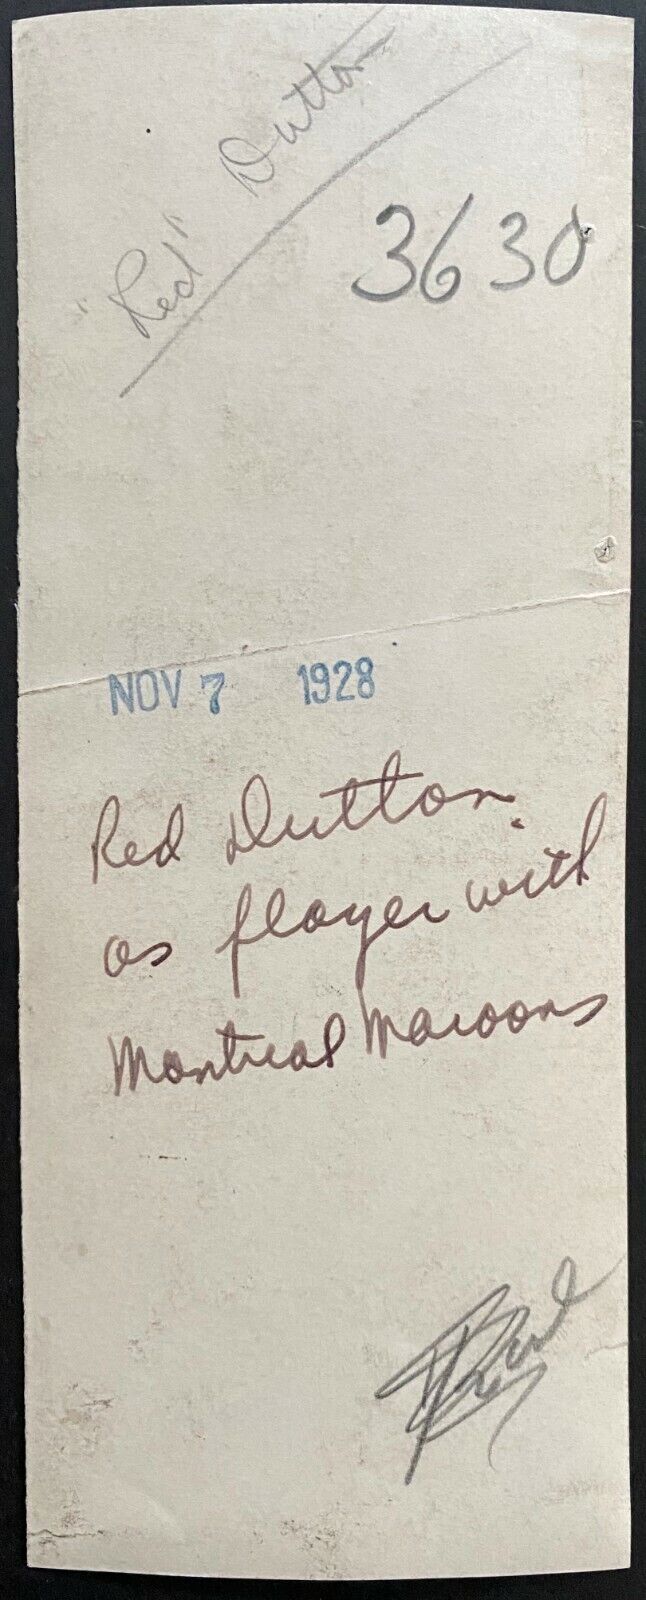 "Red" Dutton
3630
NOV 7 1928
Red Dutton
as player with
Montreal Maroons